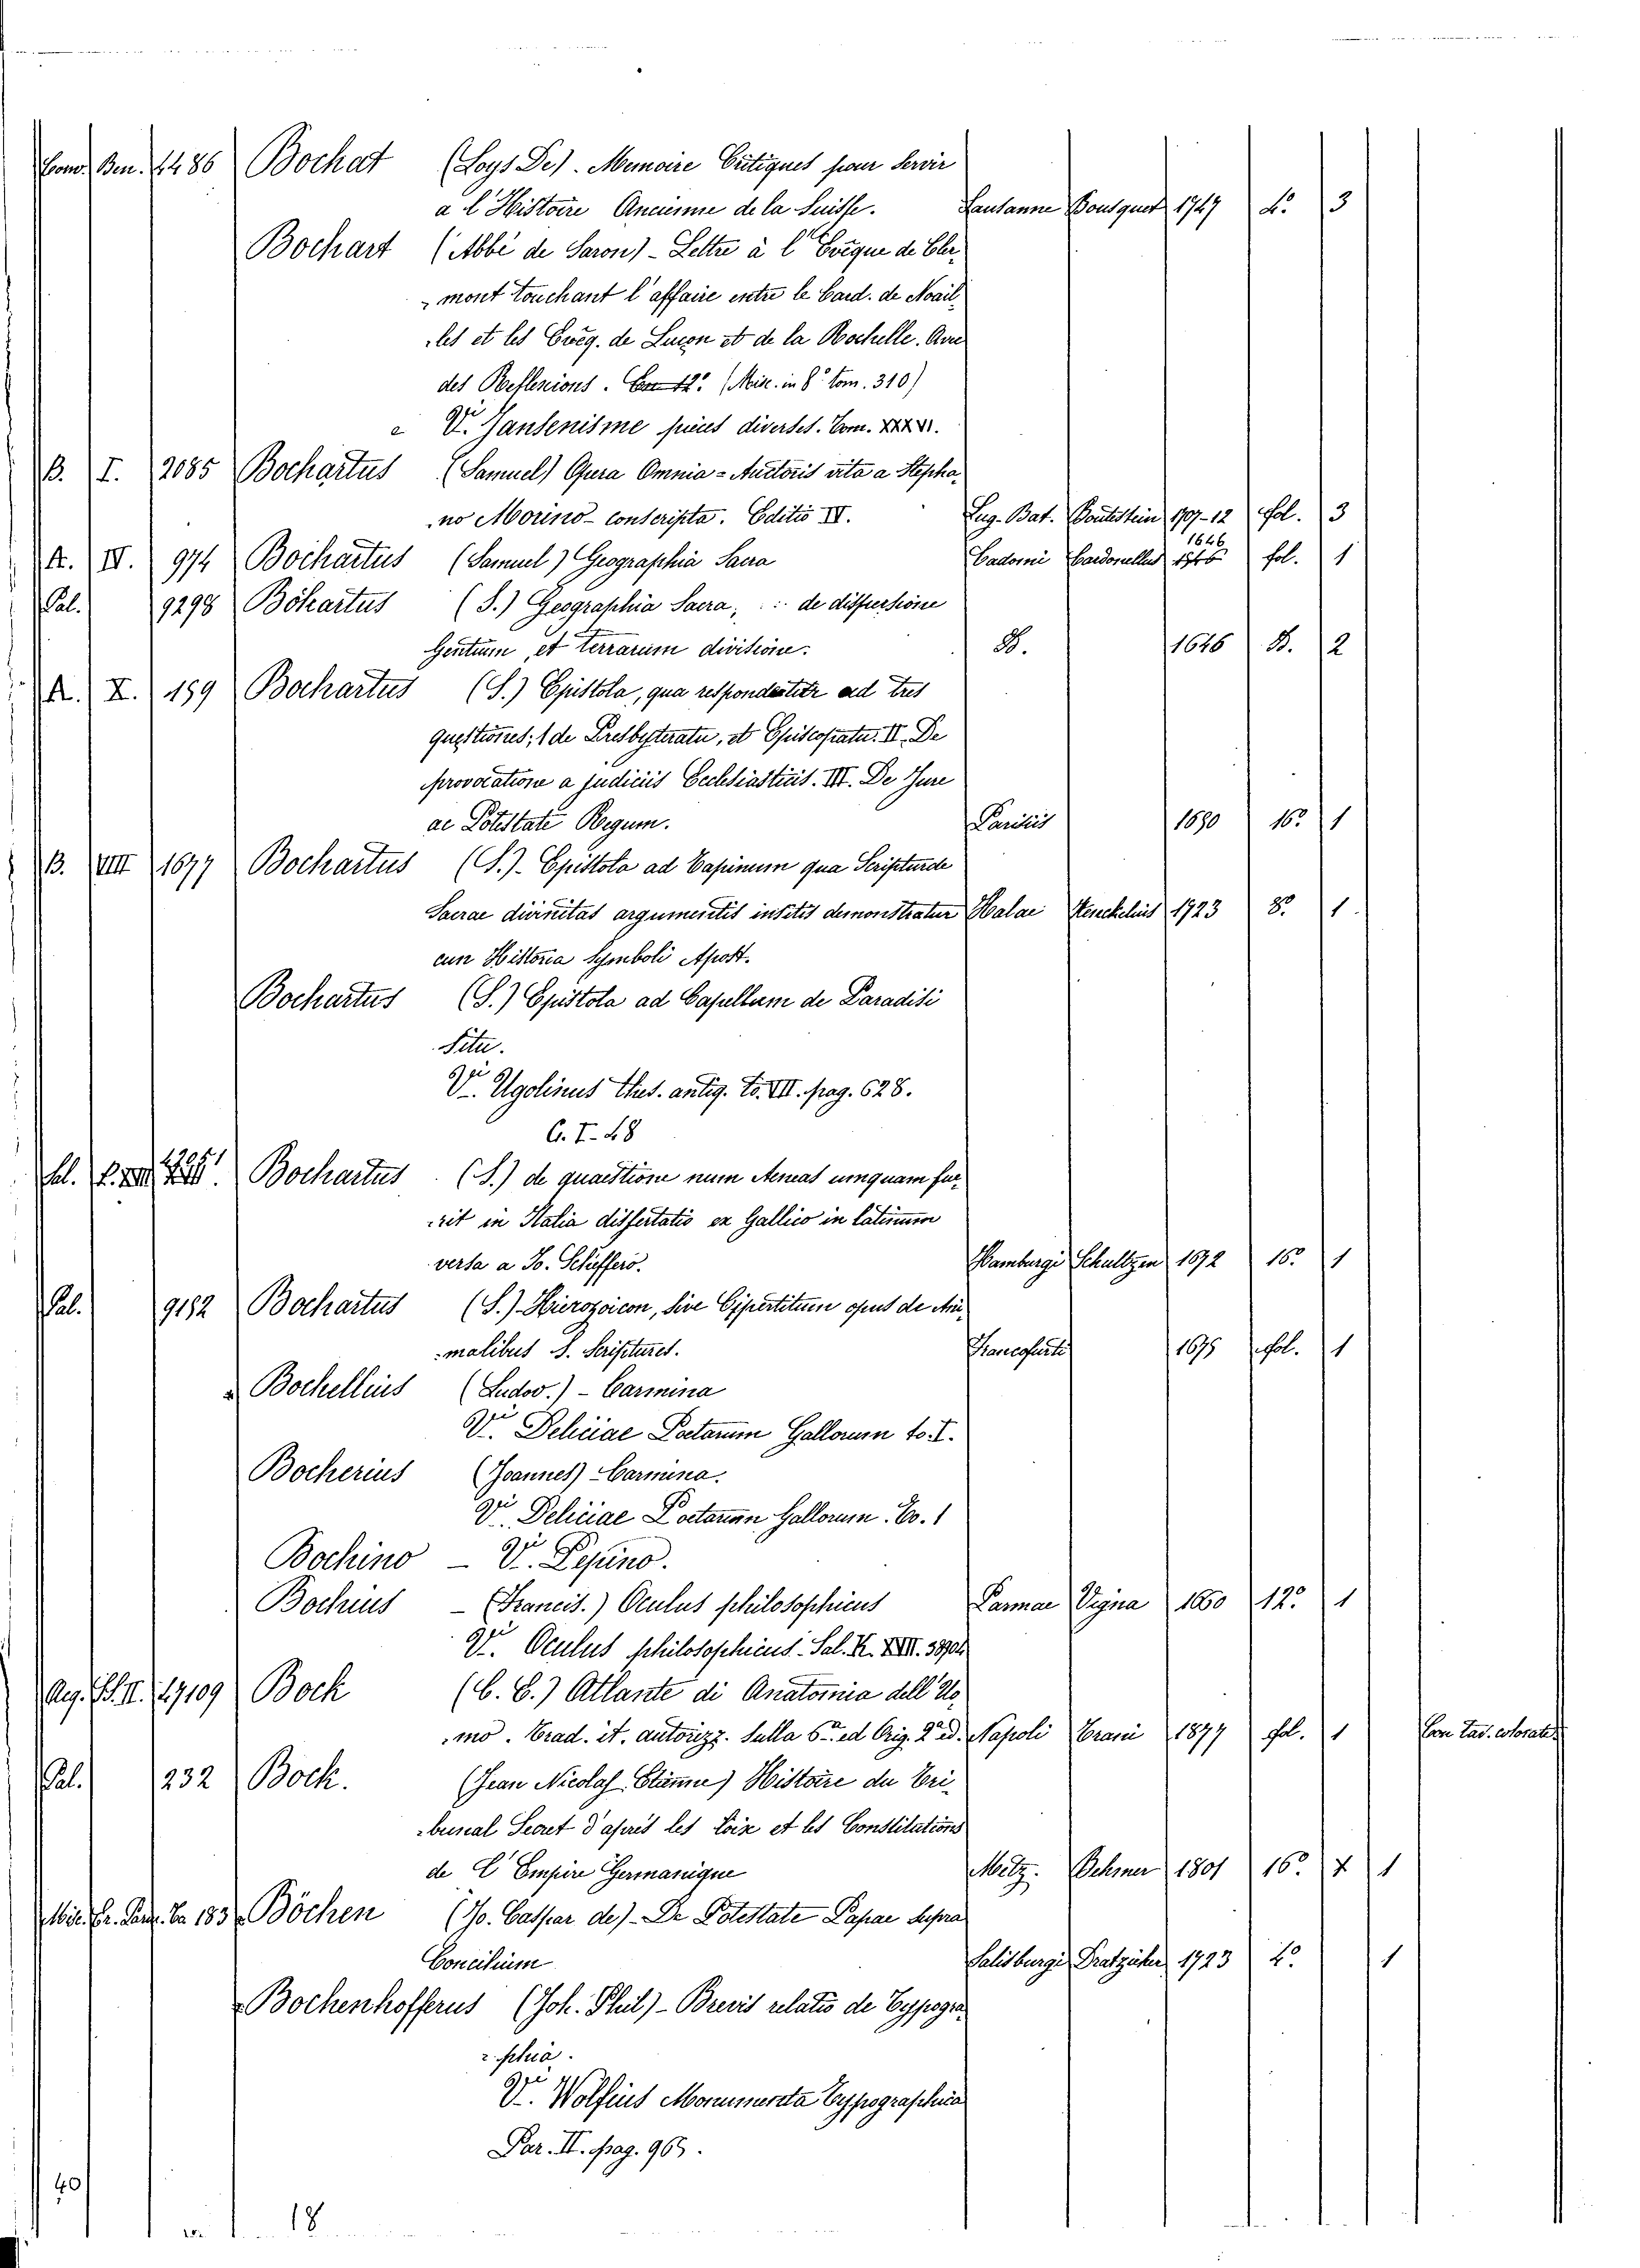 Com. Ben. 4486 Bochat (Loys De). Memoire Critiques pour Servir
a l'Histoire Ancienne de la Suisse. Lausanne Bousquet 1747 4.º 3
Bochart (Abbé de Saron) - Lettre à l'Evêque de Cler-
-mont touchant l'affaire entre le Card. de Noail-
-les et les Evêq. de Luçon et de la Rochelle. Avec
des Reflexions. (Misc. in 8º tom. 310)
e V. Jansenisme pieces diverses. Tom. XXXVI.
B. I. 2085 Bochartus (Samuel) Opera Omnia = Auctoris vita a Stepha-
no Morino - conscripta. Editio IV. Lug. Bat. Boutestein 1707-12 fol. 3
A. IV. 974 Bochartus (Samuel) Geographia Sacra Cadomi Cardonellus 1646 fol. 1
Pal. 9298 Bohartus (S.) Geographia Sacra, : de dispersione
Gentium, et terrarum divisione. B. 1646 B. 2
A. X. 159 Bochartus (S.) Epistola, qua respondetur ad tres
questiones; 1 de Presbyteratu, et Episcopatu. II. De
provocatione a judiciis Ecclesiasticis. III. De Jure
ac Potestate Regum. Parisiis 1690 16º 1
B. VIII 1677 Bochartus (S.) - Epistola ad Capinum qua Scripturde
Sacrae divinitas argumentis insitis demonstratur Halae Henckelius 1723 8º 1
cun Historia Symboli Apost.
Bochartus (S.) Epistola ad Capellum de Paradisi
Situ.
V. Ugolinus thes. antiq. to. VII. pag. 628.
G. I - 48
Bochartus (S.) de quaestione num Aeneas umquam fue-
-rit in Italia dissertatio ex Gallico in latinum
versa a Jo. Scheffero. Hamburgi Schultzen 1672 16º 1
Pal. 9182 Bochartus (S.) - Hierozoicon, sive Bipertitum opus de Ani-
-malibus S. Scriptures. Francofurti 1675 fol. 1
Bochellius (Ludov.) - Carmina
V. Deliciae Poetarum Gallorum to. I.
Bocherius (Joannes) - Carmina.
V. Deliciae Poetarum Gallorum. To. 1
Bochino - V. Pepino.
Bochius - (Francis.) Oculus philosophicus Parmae Vigna 1660 12º 1
V. Oculus philosophicus. Sal. K. XIII.
Aeg. 47109 Bock (C. E.) Atlante di Anatomia dell'Uo-
-mo. Trad. it. autorizz. sulla 6ª ed Orig. 2ª ed. Napoli Trani 1877 fol. 1 Con tav. colorate
Pal. 232 Bock. (Jean Nicolas Etiènne) Histoire du Tri-
-bunal Secret d'après les Loix et les Constitutions
de L'Empire Germanique Metz. Behmer 1801 16º 1
183 Böchen (Jo. Caspar de) - De Potestate Papae supra
Concilium Salisburgi 1723 4º 1
Bochenhofferus (Joh. Phil) - Brevis relatio de Typogra-
-phia.
V. Wolfius Monumenta Typographica
Par. II. pag. 965.
40
18